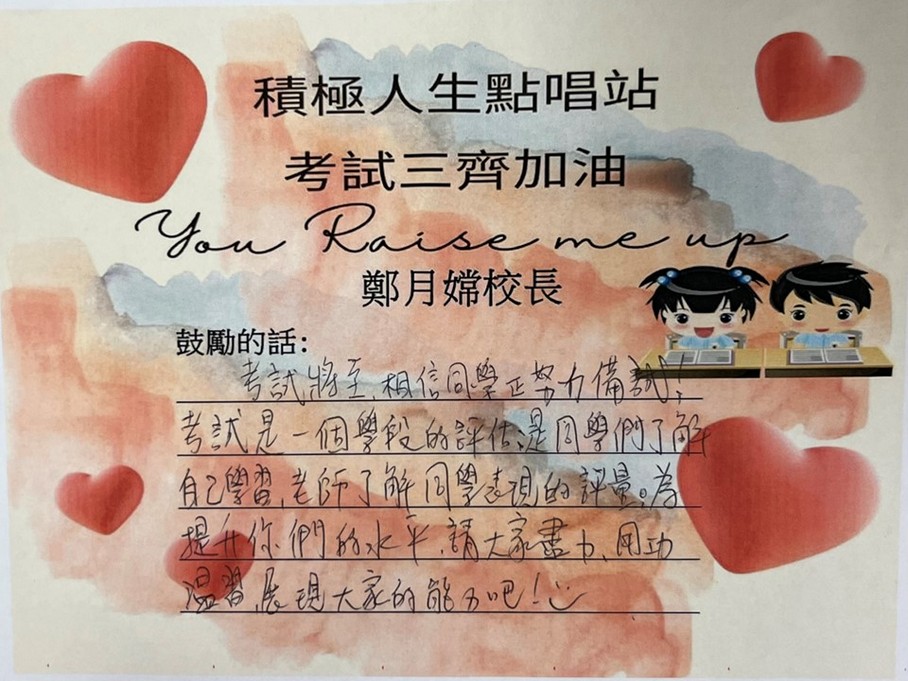 積極人生點唱站
考試三齊加油
You Raise me up
鄭月嫦校長
鼓勵的話：
考試將至，相信同學正努力備試！
考試是一個學段的評估，是同學們了解
自己學習，老師了解同學表現的評量。為
提升你們的水平，請大家盡力，用功
溫習，展現大家的能力吧！